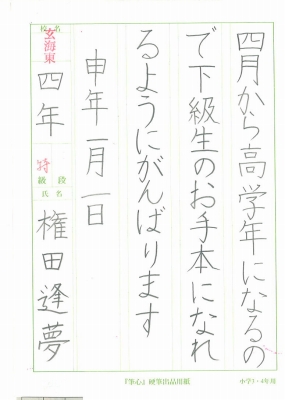 四月から高学年になるの
で下級生のお手本になれ
るようにがんばります
申年一月一日
校名
玄海東
四年
特
級段
氏名
権田逢夢
『筆心』硬筆出品用紙
小学3・4年用